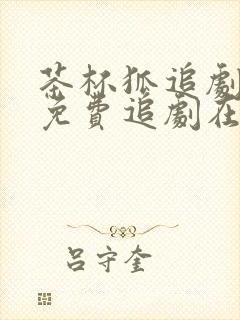 茶杯狐追劇
免費追劇在
吕守奎